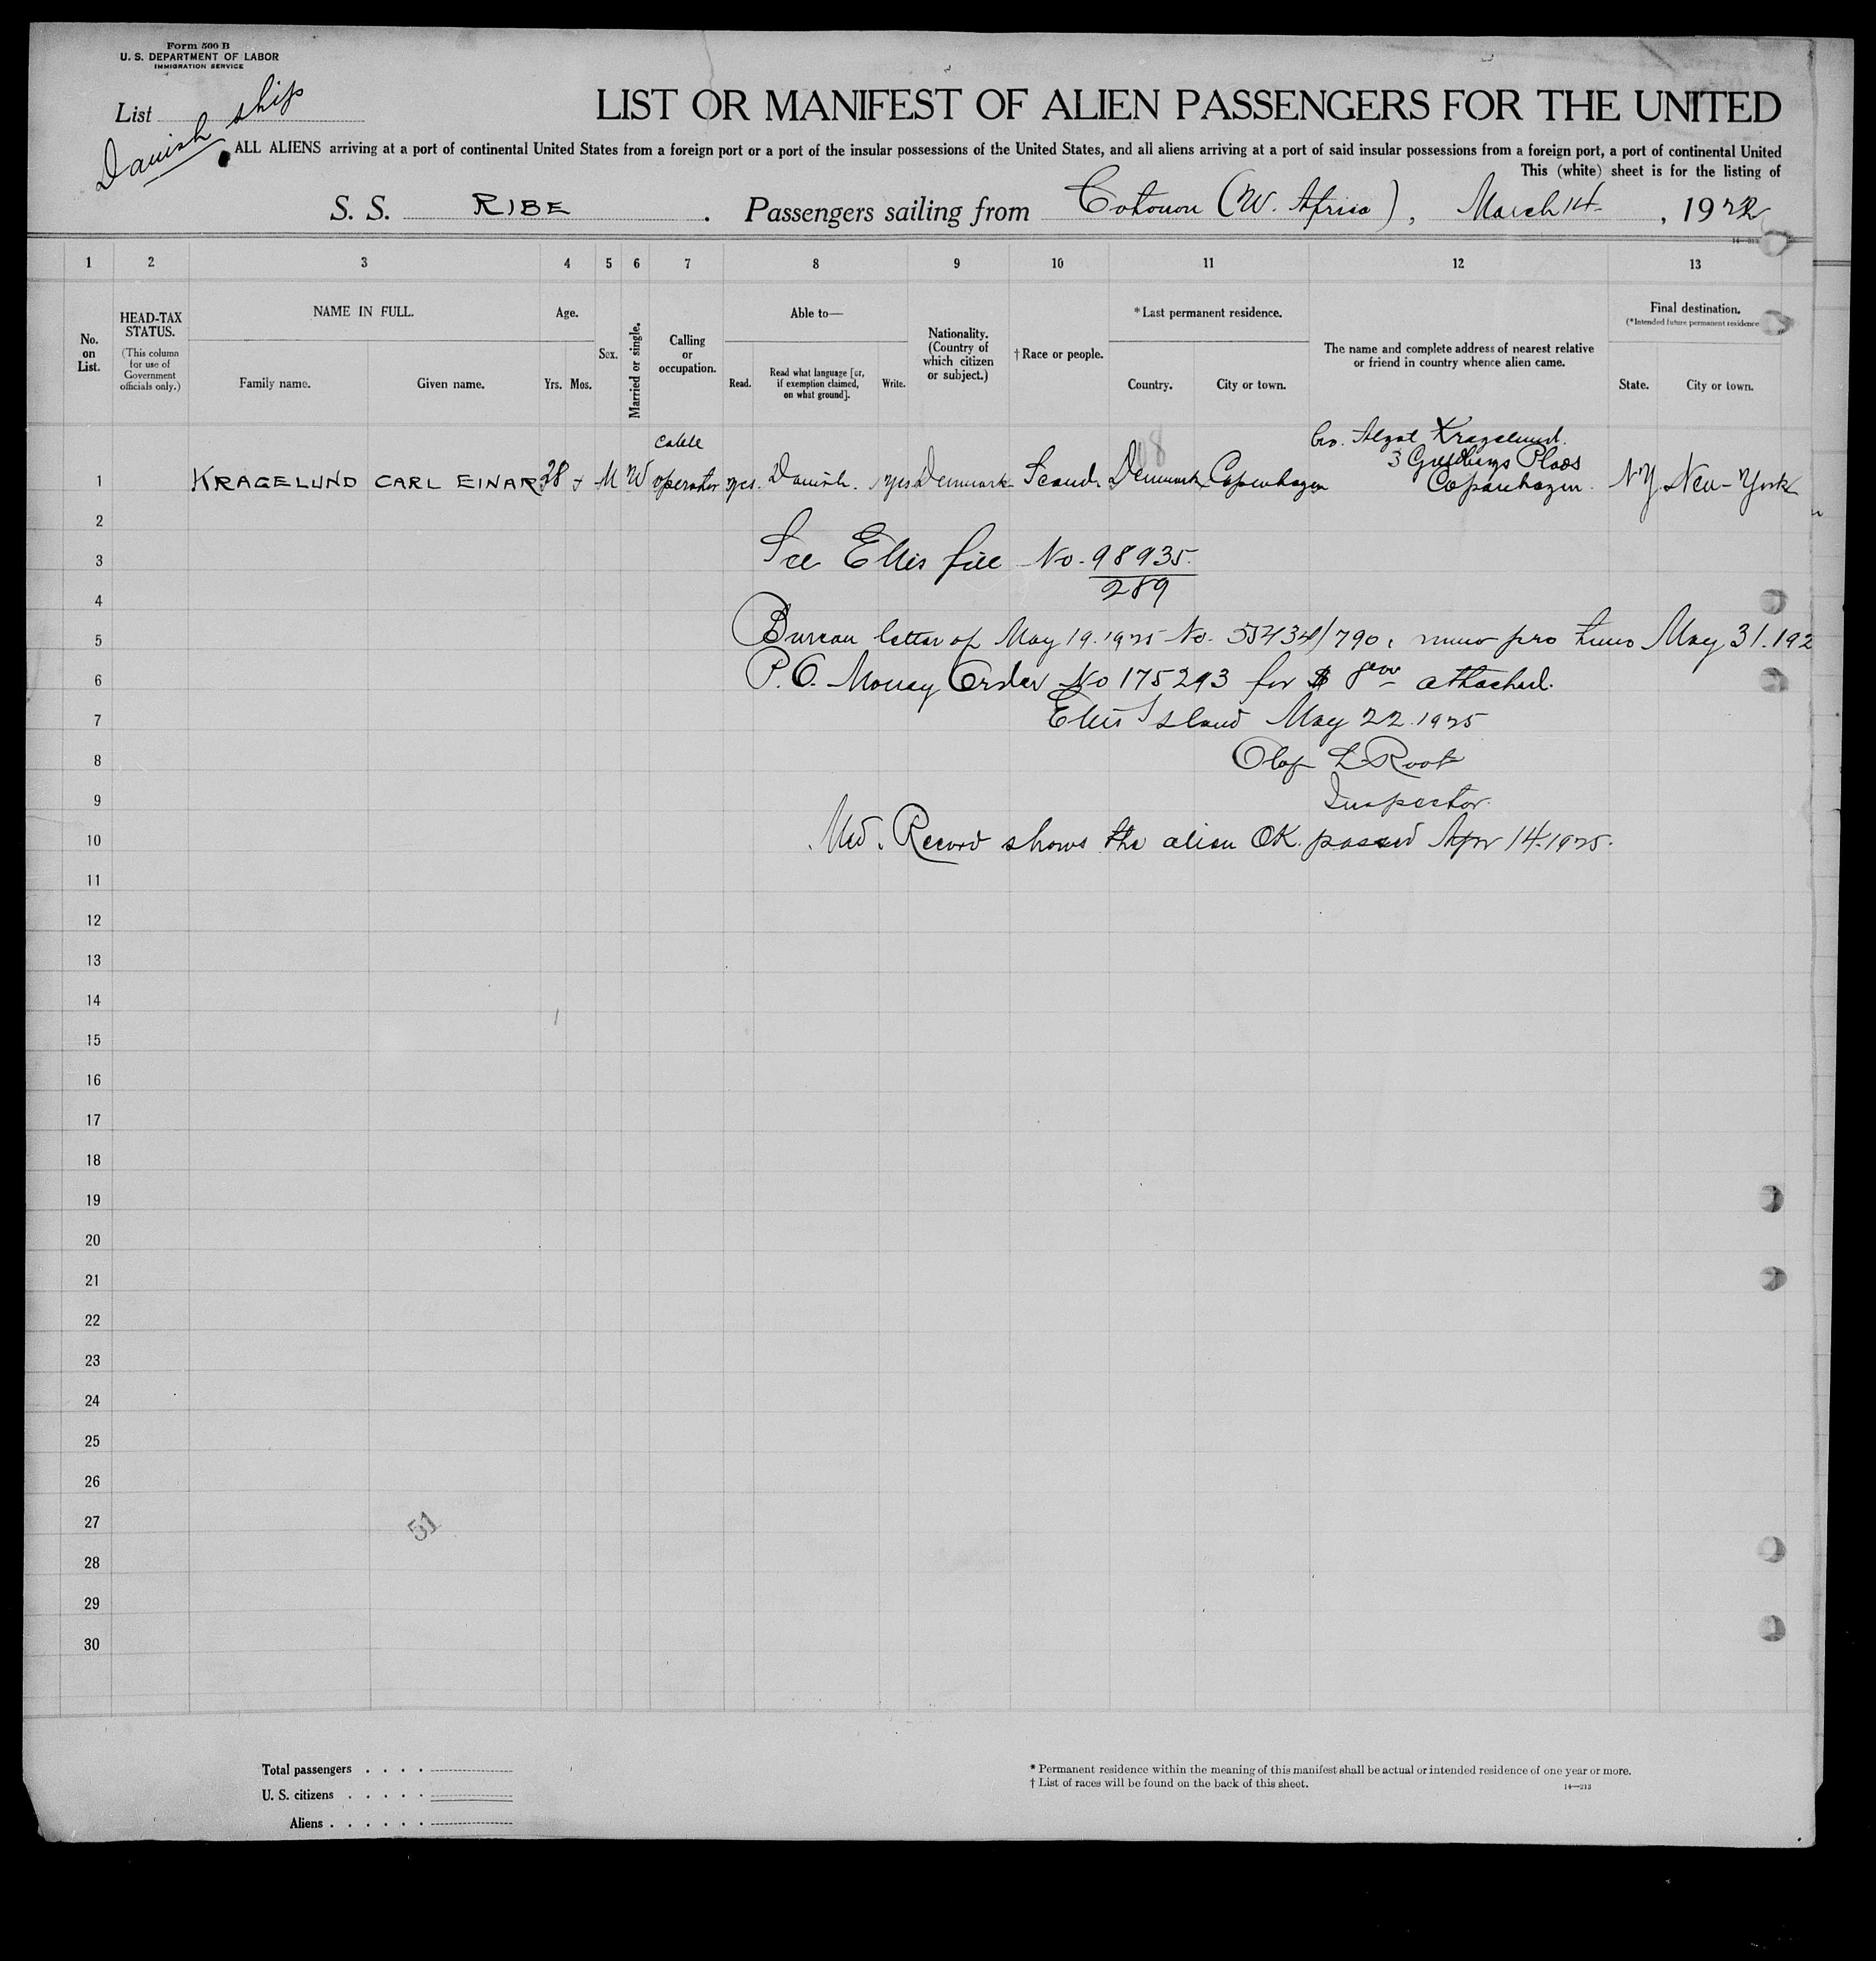 Form 500 B
U. S. DEPARTMENT OF LABOR
IMMIGRATION SERVICE
List
Danish ship
LIST OR MANIFEST OF ALIEN PASSENGERS FOR THE UNITED
ALL ALIENS arriving at a port of continental United States from a foreign port or a port of the insular possessions of the United States, and all aliens arriving at a port of said insular possessions from a foreign port, a port of continental United
This (white) sheet is for the listing of
S. S. RIBE . Passengers sailing from Cotonou (W. Africa) , March 14 , 1922
14—213
1 2 3 4 5 6 7 8 9 10 11 12 13
No. on List.
HEAD-TAX STATUS.
(This column for use of Government officials only.)
NAME IN FULL.
Family name. Given name.
Age.
Yrs. Mos.
Sex.
Married or single.
Calling or occupation.
Able to—
Read. Read what language [or, if exemption claimed, on what ground]. Write.
Nationality. (Country of which citizen or subject.)
† Race or people.
* Last permanent residence.
Country. City or town.
The name and complete address of nearest relative or friend in country whence alien came.
Final destination.
(*Intended future permanent residence
State. City or town.
1 KRAGELUND CARL EINAR 28 M W cable operator yes. Danish. yes Denmark Scand. Denmark Copenhagen
Kragelund.
3 Plads
Copenhagen. NY New-York
2
3 See Ellis file No. 98935
289
4
5 Bureau letter of May 19. 1925 No. 55434/790, nunc pro tunc May 31. 192
6 P.O. Money Order No 175293 for $ 8 00 attached.
7 Ellis Island May 22. 1925
8 Olaf L Root
9 Inspector.
10 Med. Record shows the alien OK. passed Apr 14. 1925.
11
12
13
14
15
16
17
18
19
20
21
22
23
24
25
26
27
51
28
29
30
Total passengers . . . .
U. S. citizens . . . . .
Aliens . . . . . .
* Permanent residence within the meaning of this manifest shall be actual or intended residence of one year or more.
† List of races will be found on the back of this sheet.
14—213